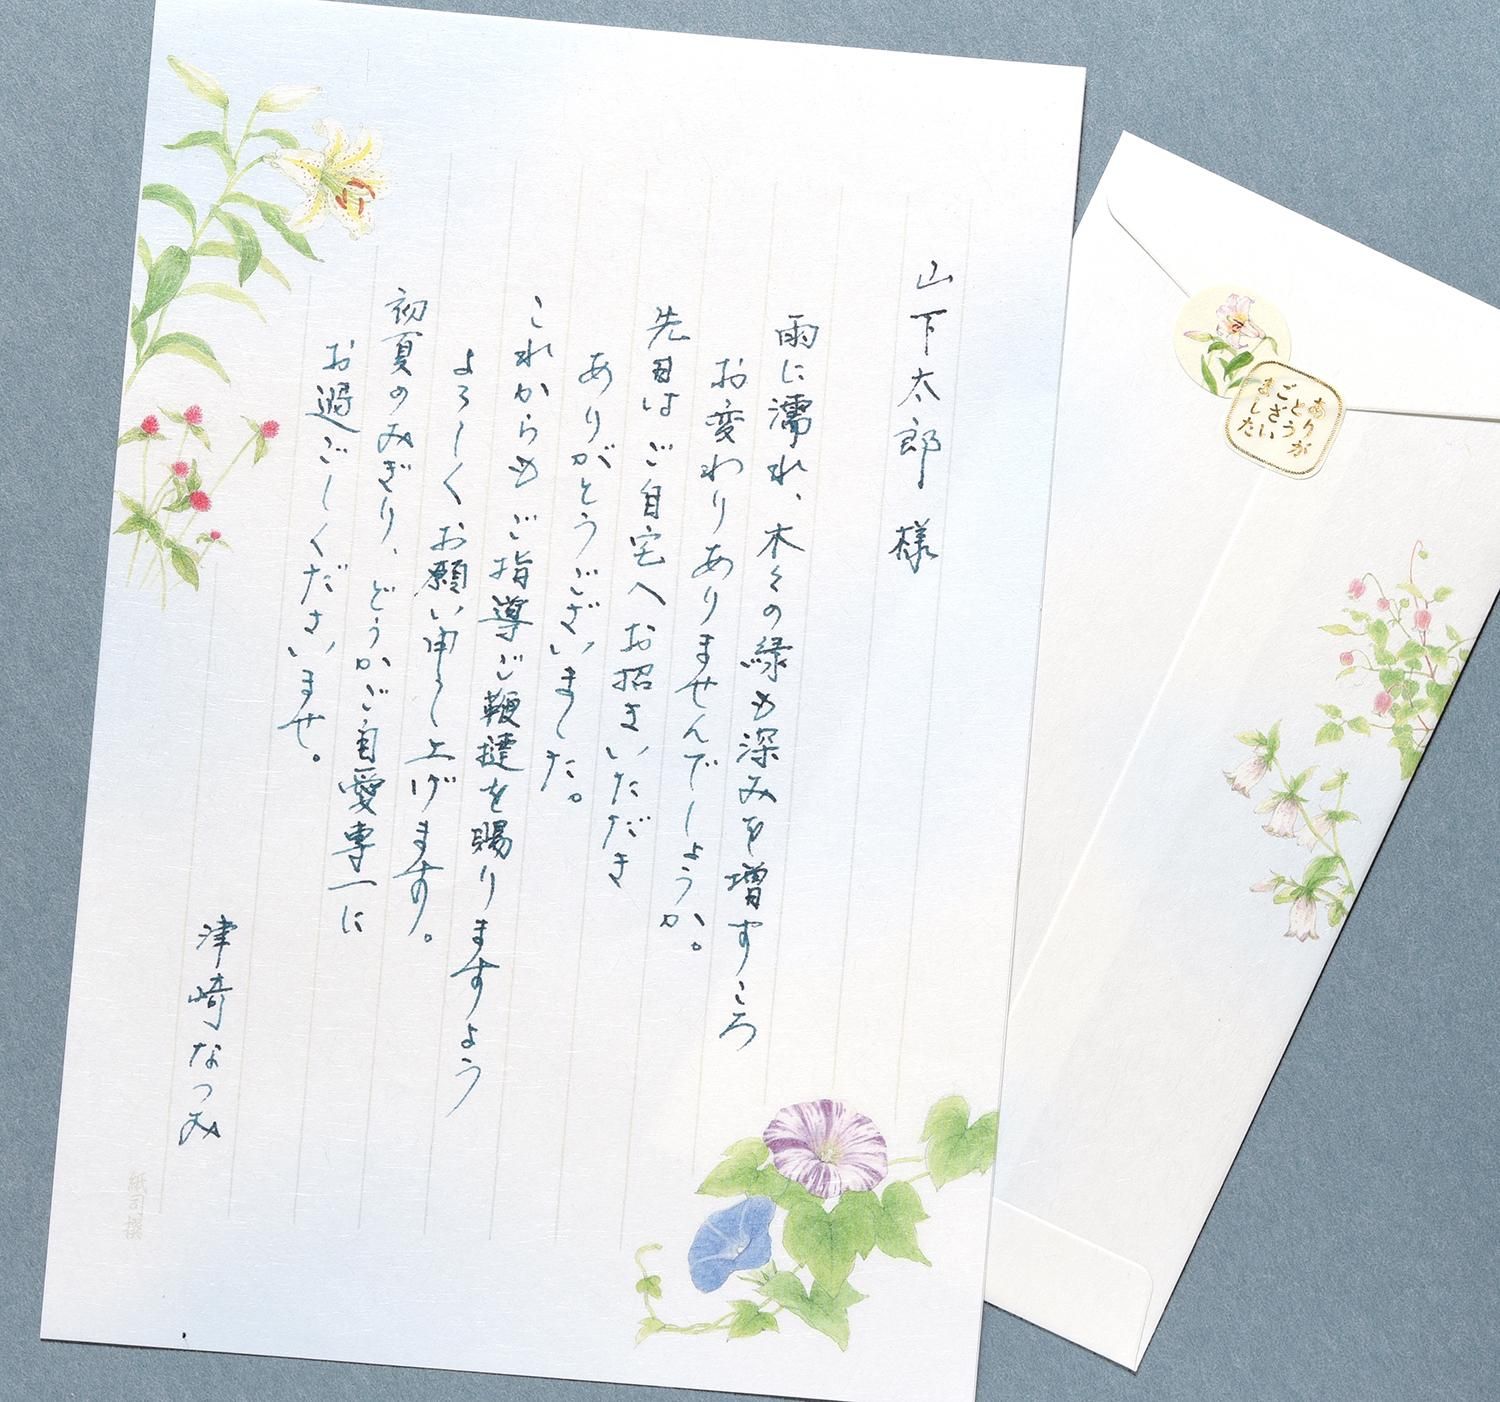 山下太郎 様
雨に濡れ、木々の緑も深みを増すころ
お変わりありませんでしょうか。
先日はご自宅へお招きいただき
ありがとうございました。
これからもご指導ご鞭撻を賜りますよう
よろしくお願い申し上げます。
初夏のみぎり、どうかご自愛専一に
お過ごしくださいませ。
津崎なつみ
紙司撰
ありが
とうご
ざい
ました